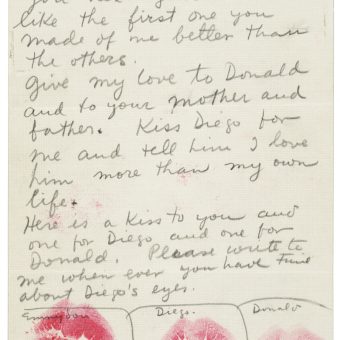 like the first one you
made of me better than
the others.
Give my love to Donald
and to your mother and
father. Kiss Diego for
me and tell him I love
him more than my own
life.
Here is a Kiss to you and
one for Diego and one for
Donald. Please write to
me when ever you have time
about Diego's eyes.
Emmy Lou
Diego.
Donald